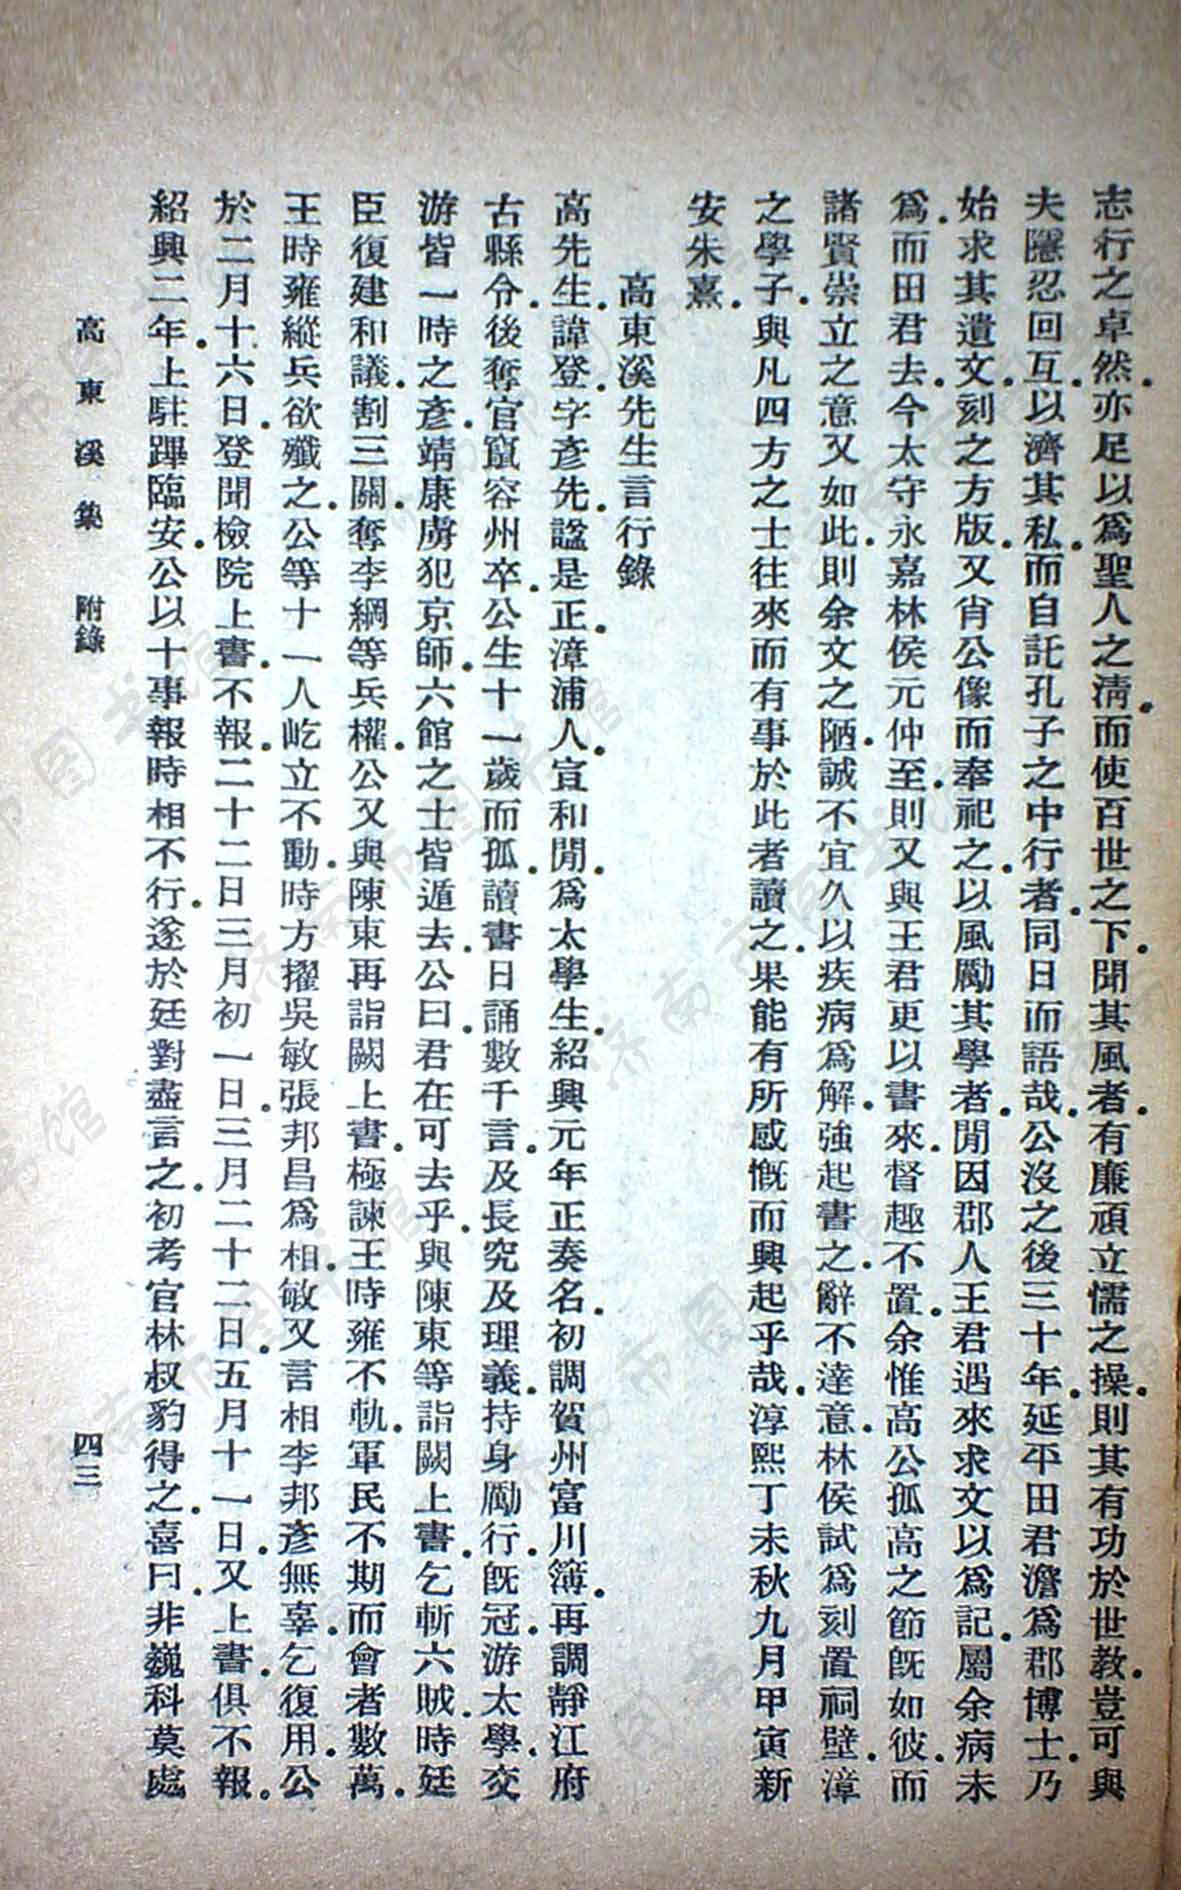 志行之卓然.亦足以爲聖人之淸.而使百世之下.聞其風者.有廉頑立懦之操.則其有功於世敎.豈可與
夫隱忍回互.以濟其私.而自託孔子之中行者.同日而語哉.公沒之後三十年.延平田君澹爲郡博士.乃
始求其遺文.刻之方版.又肖公像而奉祀之.以風勵其學者.閒因郡人王君遇來求文以爲記.屬余病未
爲.而田君去.今太守永嘉林侯元仲至.則又與王君更以書來.督趣不置.余惟高公孤高之節旣如彼.而
諸賢崇立之意又如此.則余文之陋.誠不宜久以疾病爲解.強起書之.辭不達意.林侯試爲刻置祠壁.漳
之學子.與凡四方之士往來而有事於此者讀之.果能有所感慨而興起乎哉.淳熙丁未秋九月甲寅新
安朱熹.
高東溪先生言行錄
高先生.諱登.字彥先.諡是正.漳浦人.宣和閒.爲太學生.紹興元年正奏名.初調賀州富川簿.再調靜江府
古縣令.後奪官竄容州卒.公生十一歲而孤.讀書日誦數千言.及長究及理義.持身勵行.旣冠.游太學.交
游皆一時之彥.靖康虜犯京師.六館之士皆遁去.公曰.君在可去乎.與陳東等詣闕上書.乞斬六賊.時廷
臣復建和議.割三關.奪李綱等兵權.公又與陳東再詣闕上書.極諫王時雍不軌.軍民不期而會者數萬.
王時雍縱兵欲殲之.公等十一人屹立不動.時方擢吳敏張邦昌爲相.敏又言相李邦彥無辜.乞復用.公
於二月十六日.登聞檢院上書.不報.二十二日三月初一日.三月二十二日.五月十一日.又上書.俱不報.
紹興二年.上駐蹕臨安.公以十事報時相不行.遂於廷對盡言之.初考官林叔豹得之.喜曰.非巍科莫處
高東溪集 附錄
四三